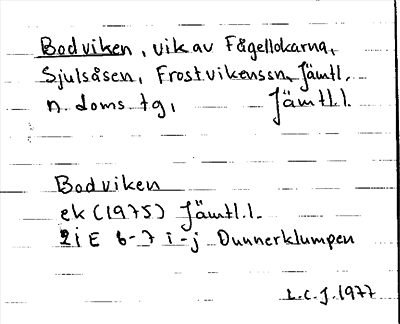 Bodviken, vik av Fågellokarna,
Sjulsåsen, Frostvikenssn, Jämtl.
n. doms.tg, Jämtl.l.
Bodviken
ek (1975) Jämtl.l.
21 E 6-7 i-j Dunnerklumpen
L.C.J. 1977